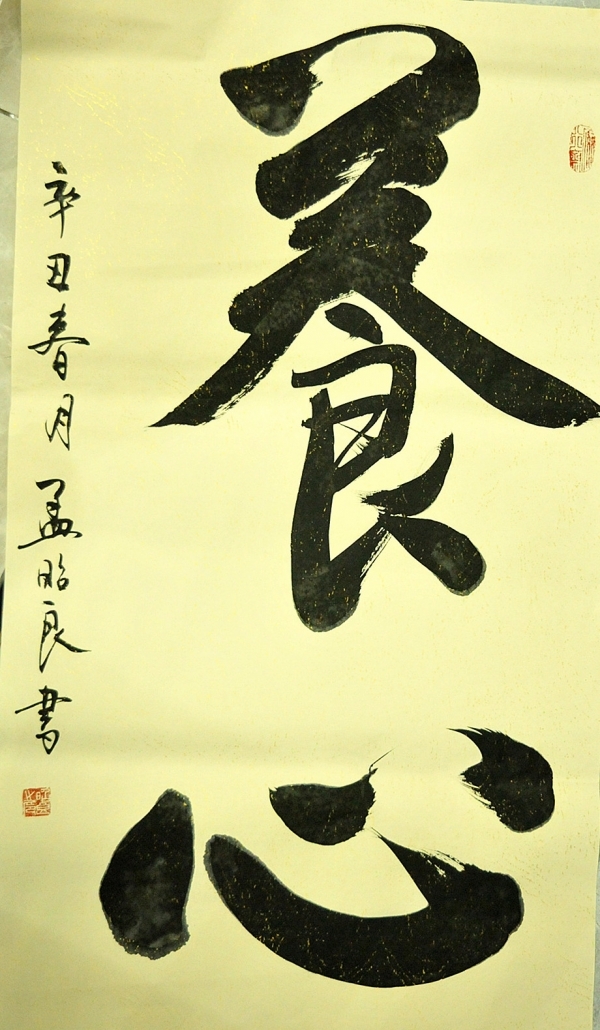 養心
辛丑春月孟昭良書